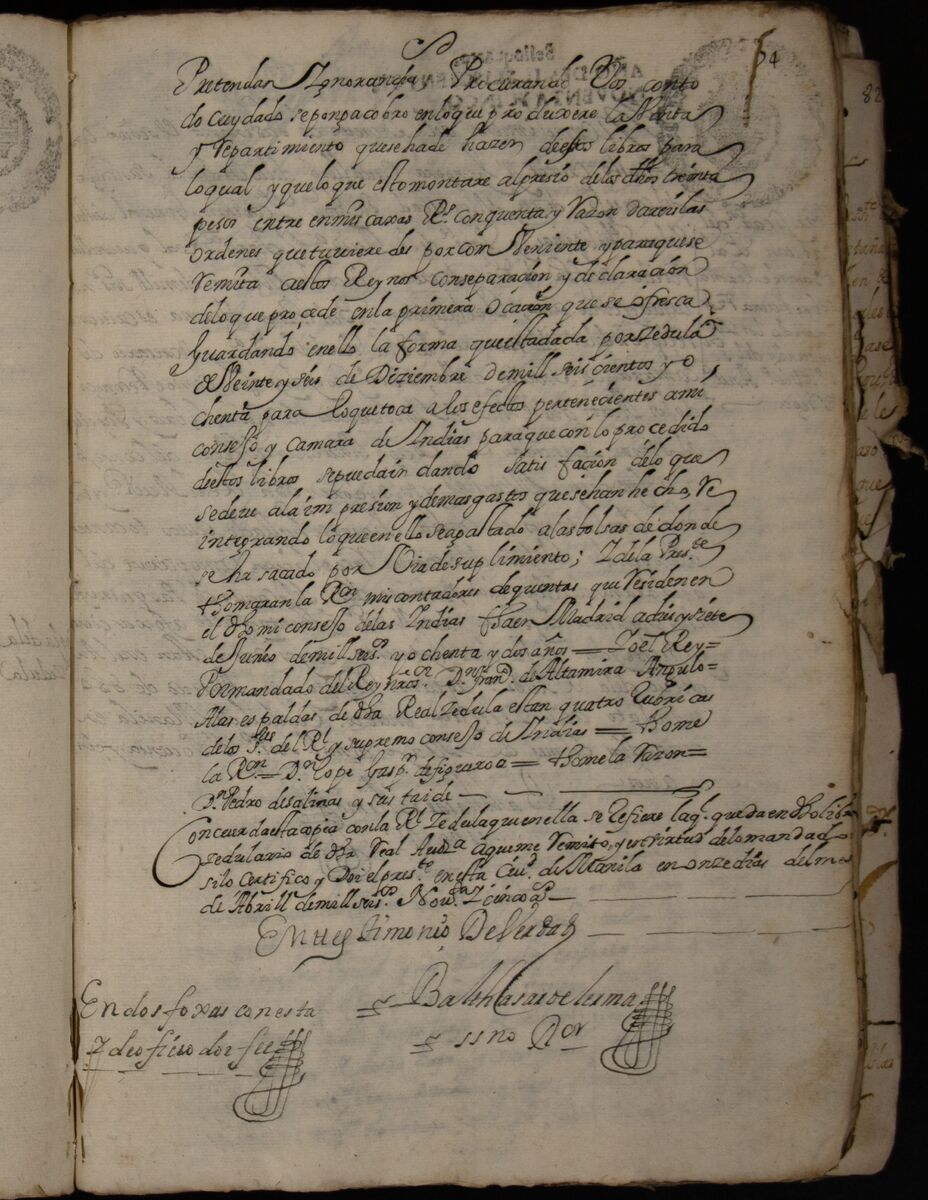 54
Pretendan Ygnorancia, Y Procurando Vos con to
do cuydado se ponga cobro en lo que produxere la Venta
y repartimiento que se ha de hazer de estos libros para
lo qual y que lo que esto montare al presio de los dhos treinta
pesos entre en mis caxas Rs con quenta y razon dareis las
ordenes que tuviere des por com beniente y para que se
remita a estos Reynos con separacion y declaracion
de lo que procede en la primera ocacion que se ofresca
Guardando en ello la forma que esta dada por Zedula
de Veinte y seis de Diziembre de mill seiscientos y o
chenta para lo que toca a los efectos pertenecientes a mi
consejo y camara de Indias para que con lo procedido
de estos libros se pueda ir dando satisfacion de lo que
se deve a la impresion y demas gastos que se han hecho, re
integrando lo que en ello se a gastado a las bolsas de donde
se ha sacado por via de suplimiento; I de la Pres.te
thomaran la Ron mis contadores de quentas que residen en
el dho mi consejo de las Indias fha en Madrid a dies y siete
de Junio de mill seis.s y ochenta y dos años = Yo el Rey =
Por mandado del Rey nro s.or D.n fran.co de Altamira Angulo =
A las espaldas de dha Real Zedula estan quatro rubricas
de los S.res del Rl y supremo consejo de Indias = thome
la Ron = D.n lope Gasp.r de figueroa = thome la razon =
D.n Pedro de salinas y sustaide
Concuerda esta copia con la Rl Zedula que en ella se refiere la q. queda en dho libro
zedulario de dha real Aud.a a que me remito, y en virtud de lo mandado
asi lo certifico y doi el pres.te en esta Ciu.d de Manila en onze dias del mes
de Abrill de mill seis.os Nov.ta y cinco a.s
En testimonio De Verdad
Balthasar de lerma
ss no Ror
En dos foxas con esta
y de oficio doi fee
82